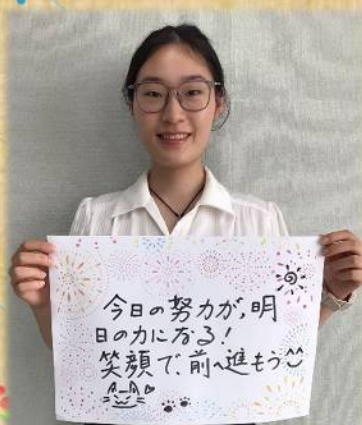 今日の努力が,明
日の力になる!
笑顔で、前へ進もう